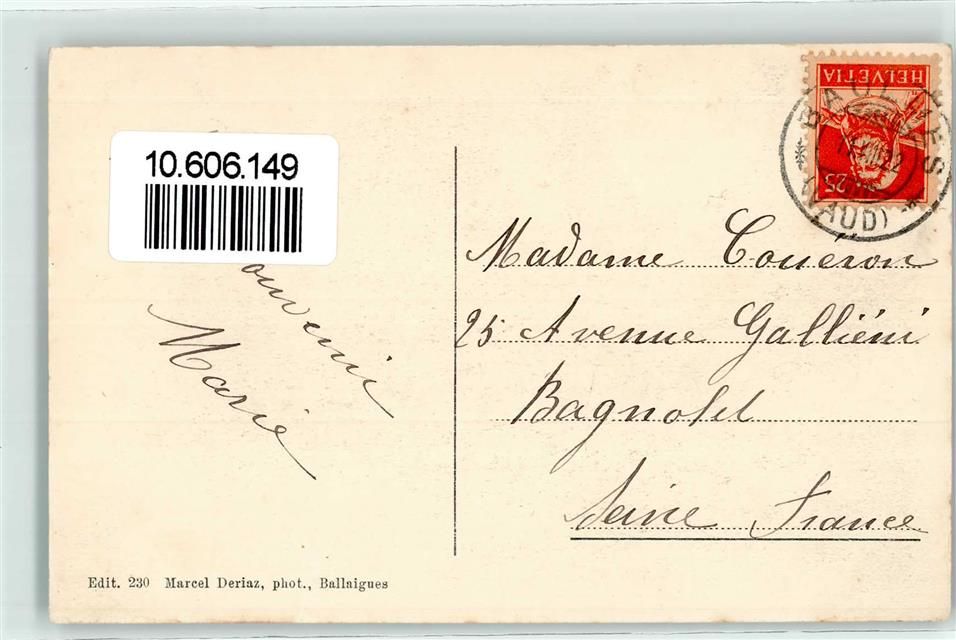 10.606.149
HELVETIA
25
BAULMES
(VAUD)
Madame Coueron
25 Avenue Galliéni
Bagnolet
Seine France
Marie
Edit. 230 Marcel Deriaz, phot., Ballaigues